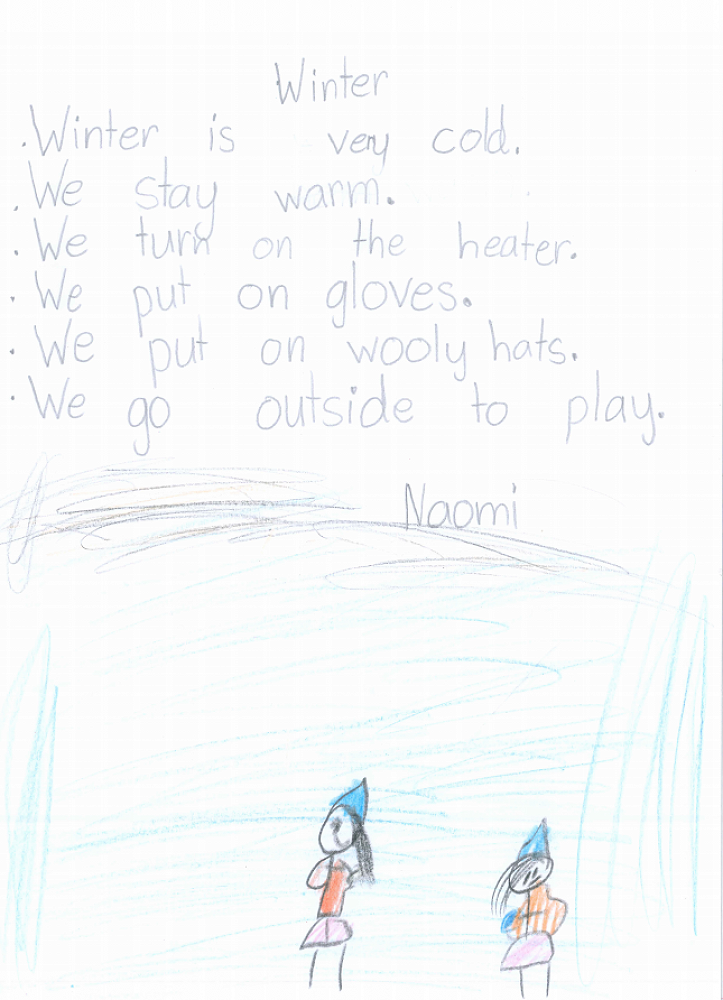 Winter
.Winter is very cold.
.We stay warm.
.We turn on the heater.
.We put on gloves.
.We put on wooly hats.
.We go outside to play.
Naomi